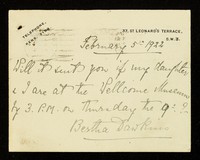 TELEPHONE,
ST. LEONARD'S TERRACE,
S.W.3.
February 5th 1922
Will it suit you if my daughter
& I are at the Wellcome Museum
by 3. P.M. on Thursday the 9th?
Bertha Dawkins